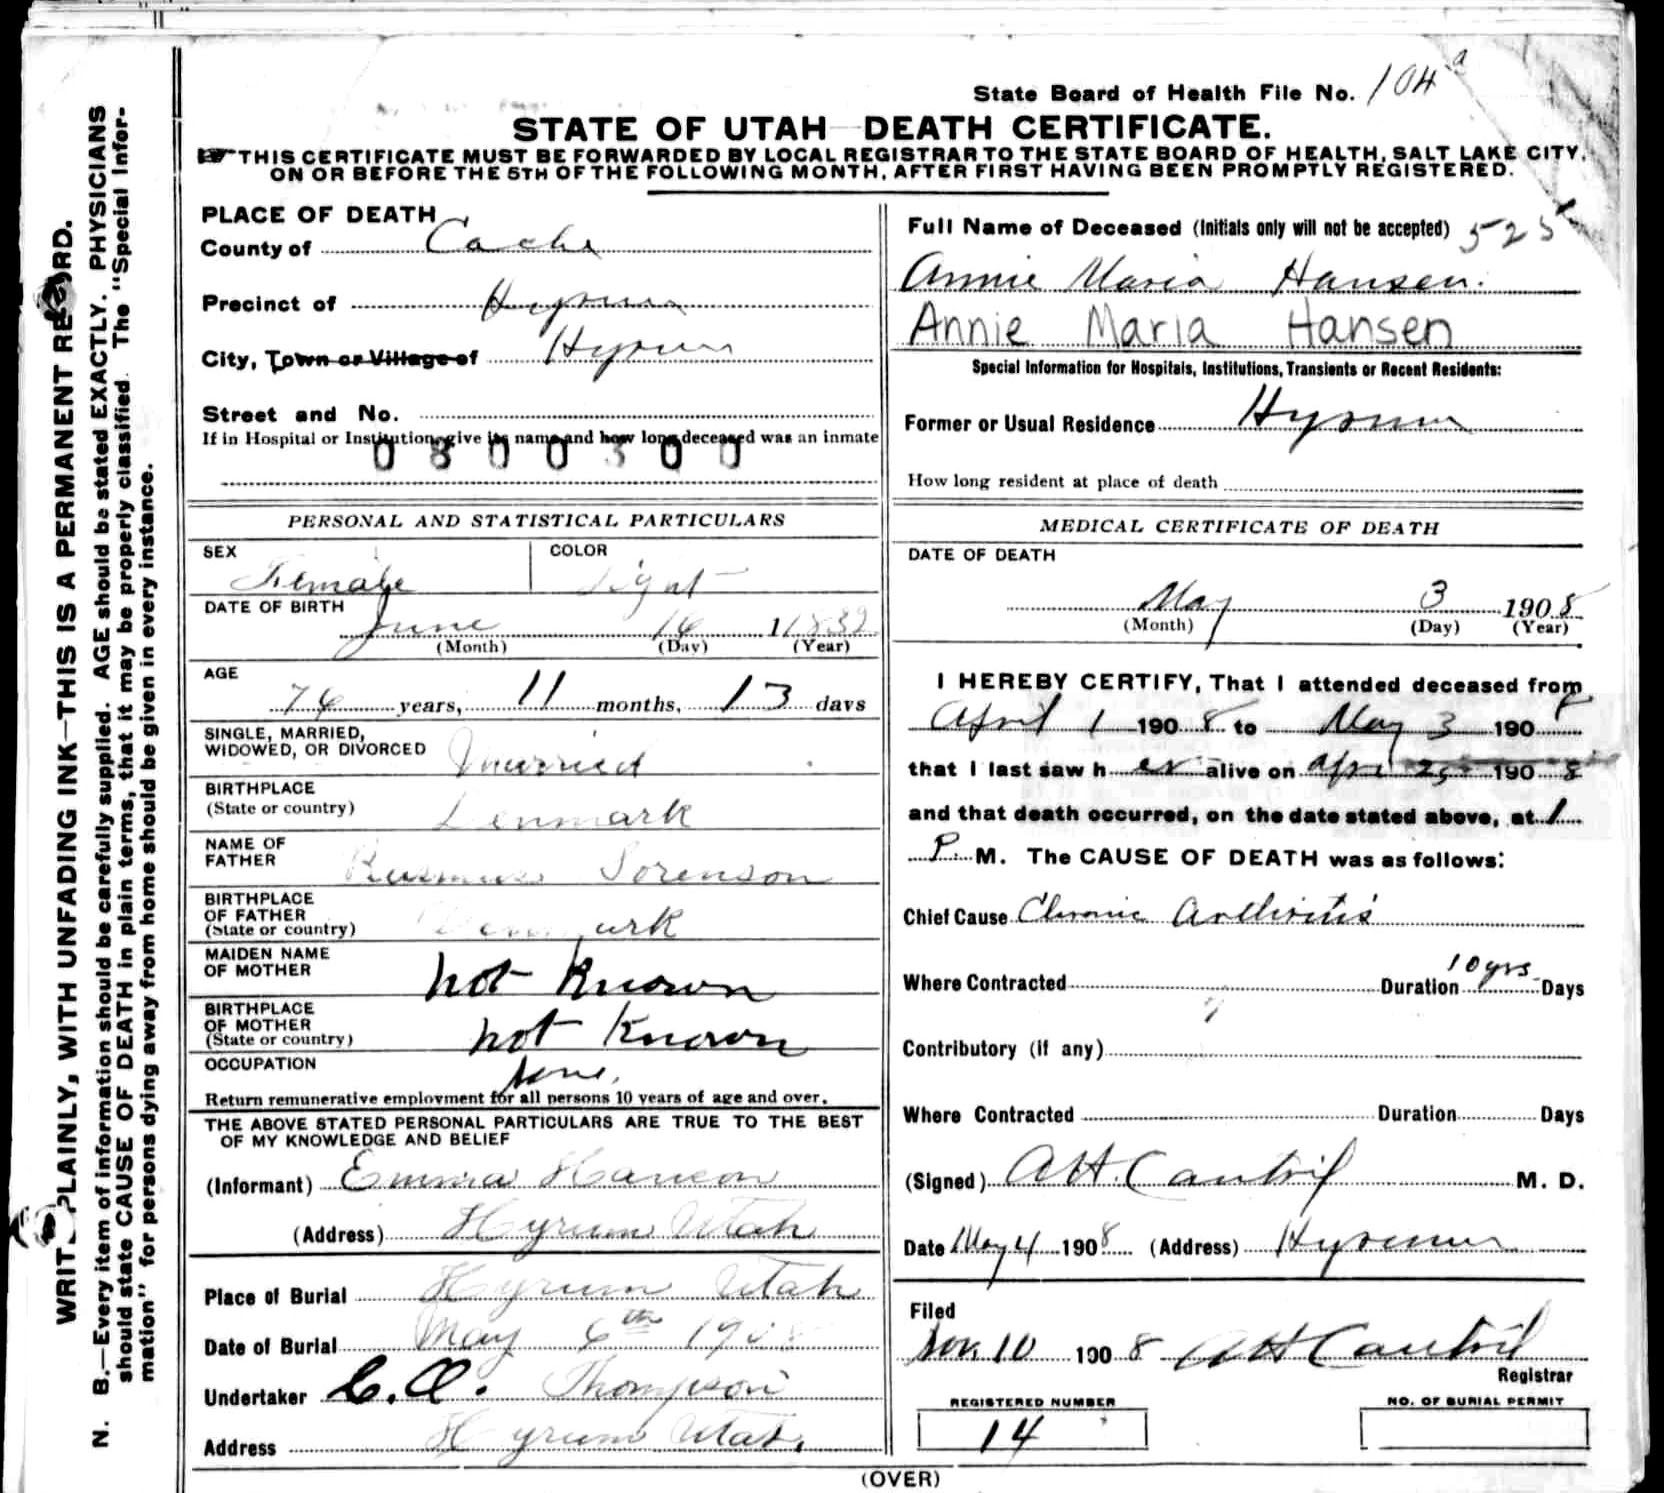 State Board of Health File No. 104 a
STATE OF UTAH DEATH CERTIFICATE.
THIS CERTIFICATE MUST BE FORWARDED BY LOCAL REGISTRAR TO THE STATE BOARD OF HEALTH, SALT LAKE CITY,
ON OR BEFORE THE 5TH OF THE FOLLOWING MONTH, AFTER FIRST HAVING BEEN PROMPTLY REGISTERED.
WRITE PLAINLY, WITH UNFADING INK—THIS IS A PERMANENT RECORD.
N. B.—Every item of information should be carefully supplied. AGE should be stated EXACTLY. PHYSICIANS
should state CAUSE OF DEATH in plain terms, that it may be properly classified. The "Special Infor-
mation" for persons dying away from home should be given in every instance.
PLACE OF DEATH
County of Cache
Precinct of Hyrum
City, Town or Village of Hyrum
Street and No.
If in Hospital or Institution, give its name and how long deceased was an inmate
0800300
PERSONAL AND STATISTICAL PARTICULARS
SEX COLOR
Female Light
DATE OF BIRTH
June 16 1832
(Month) (Day) (Year)
AGE
76 years, 11 months, 13 days
SINGLE, MARRIED,
WIDOWED, OR DIVORCED Married
BIRTHPLACE
(State or country) Denmark
NAME OF
FATHER Rasmus Sorenson
BIRTHPLACE
OF FATHER
(State or country) Denmark
MAIDEN NAME
OF MOTHER not Known
BIRTHPLACE
OF MOTHER
(State or country) not Known
OCCUPATION
None.
Return remunerative employment for all persons 10 years of age and over.
THE ABOVE STATED PERSONAL PARTICULARS ARE TRUE TO THE BEST
OF MY KNOWLEDGE AND BELIEF
(Informant) Emma Hanson
(Address) Hyrum Utah
Place of Burial Hyrum Utah
Date of Burial May 6th 1908
Undertaker C. A. Thompson
Address Hyrum Utah.
Full Name of Deceased (Initials only will not be accepted) 525
Annie Maria Hansen.
Annie Maria Hansen
Special Information for Hospitals, Institutions, Transients or Recent Residents:
Former or Usual Residence Hyrum
How long resident at place of death
MEDICAL CERTIFICATE OF DEATH
DATE OF DEATH
May 3 1908
(Month) (Day) (Year)
I HEREBY CERTIFY, That I attended deceased from
April 1 1908 to May 3 1908
that I last saw her alive on Apr 25 1908
and that death occurred, on the date stated above, at 1
P. M. The CAUSE OF DEATH was as follows:
Chief Cause Chronic Arthritis
Where Contracted Duration 10 yrs Days
Contributory (if any)
Where Contracted Duration Days
(Signed) A H. Cantril M. D.
Date May 4 1908 (Address) Hyrum
Filed
Nov. 10 1908 A H Cantril
Registrar
REGISTERED NUMBER NO. OF BURIAL PERMIT
14
(OVER)